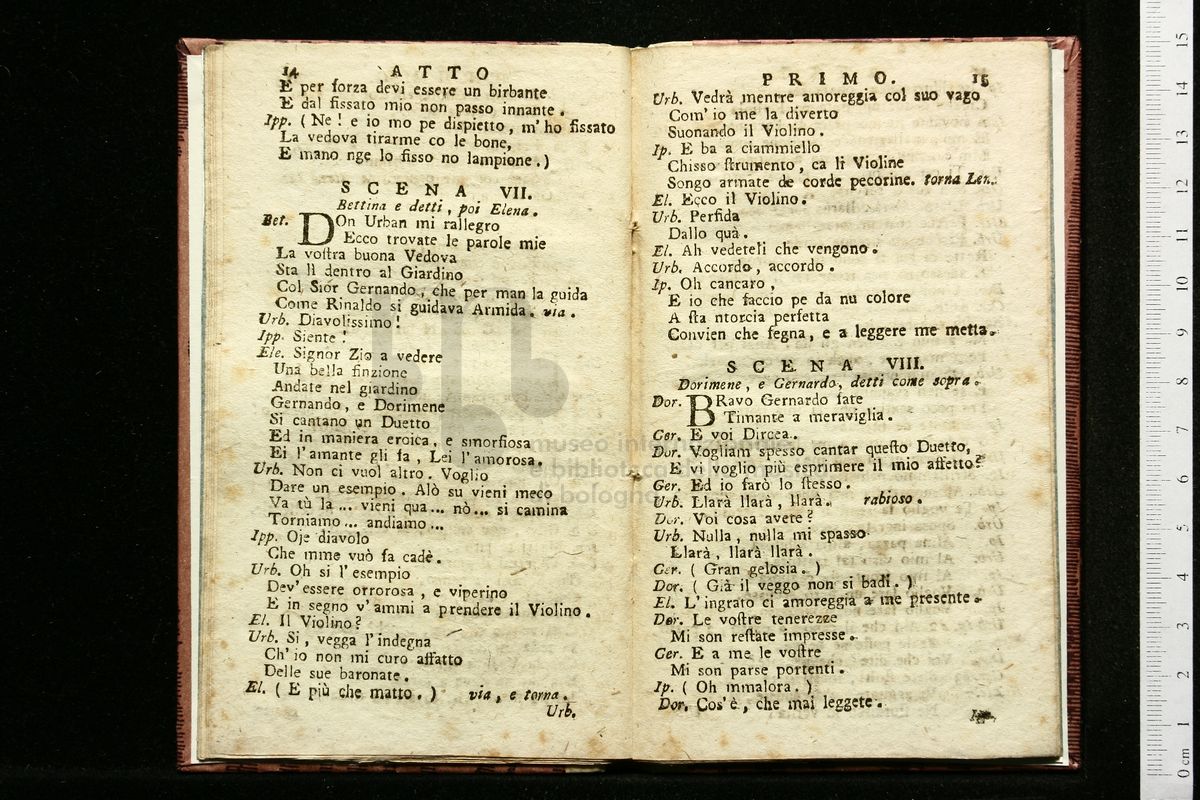 14 ATTO
E per forza devi essere un birbante
E dal fissato mio non passo innante.
Ipp. (Ne! e io mo pe dispietto, m'ho fissato
La vedova tirarme co le bone,
E mano nge lo fisso no lampione.)
SCENA VII.
Bettina e detti, poi Elena.
Bet. DOn Urban mi rallegro
Ecco trovate le parole mie
La vostra buona Vedova
Sta lì dentro al Giardino
Col Sior Gernando, che per man la guida
Come Rinaldo si guidava Armida. via.
Urb. Diavolissimo!
Ipp. Siente!
Ele. Signor Zio a vedere
Una bella finzione
Andate nel giardino
Gernando, e Dorimene
Si cantano un Duetto
Ed in maniera eroica, e smorfiosa
Ei l'amante gli fa, Lei l'amorosa.
Urb. Non ci vuol altro. Voglio
Dare un esempio. Alò su vieni meco
Va tù la... vieni qua... nò... si camina
Torniamo... andiamo...
Ipp. Oje diavolo
Che mme vuò fa cadè.
Urb. Oh si l'esempio
Dev'essere orrorosa, e viperino
E in segno v'ammi a prendere il Violino.
El. Il Violino?
Urb. Si, vegga l'indegna
Ch'io non mi curo affatto
Delle sue baronate.
El. (E più che matto.) via, e torna.
Urb.
PRIMO. 15
Urb. Vedrà mentre amoreggia col suo vago
Com'io me la diverto
Suonando il Violino.
Ip. E ba a ciammiello
Chisso strumento, ca li Violine
Songo armate de corde pecorine. torna Len.
El. Ecco il Violino.
Urb. Perfida
Dallo quà.
El. Ah vedeteli che vengono.
Urb. Accordo, accordo.
Ip. Oh cancaro,
E io che faccio pe da nu colore
A sta ntorcia perfetta
Convien che fegna, e a leggere me metta.
SCENA VIII.
Dorimene, e Gernardo, detti come sopra.
Dor. BRavo Gernardo fate
Timante a meraviglia.
Ger. E voi Dircea.
Dor. Vogliam spesso cantar questo Duetto,
E vi voglio più esprimere il mio affetto?
Ger. Ed io farò lo stesso.
Urb. Llarà llarà, llarà. rabioso.
Dor. Voi cosa avete?
Urb. Nulla, nulla mi spasso
Llarà, llarà llarà.
Ger. (Gran gelosia.)
Dor. (Già il veggo non si badi.)
El. L'ingrato ci amoreggia a me presente.
Dor. Le vostre tenerezze
Mi son restate impresse.
Ger. E a me le vostre
Mi son parse portenti.
Ip. (Oh mmalora.)
Dor. Cos'è, che mai leggete.
museo internazionale
e biblioteca
di bologna